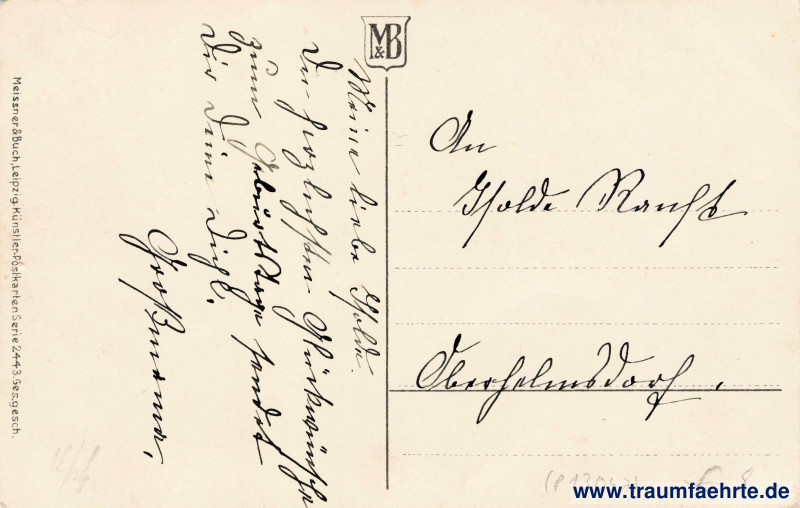 M&B
Meine liebe Isolde.
Die herzlichsten Glückwünsche
zum Geburtstage sendet
Dir Deine Dich l.
Großmama.
An
Isolde
Oberhelmsdorf.
Meissner & Buch, Leipzig. Künstler-Postkarten Serie 2443. Ges. gesch.
www.traumfaehrte.de